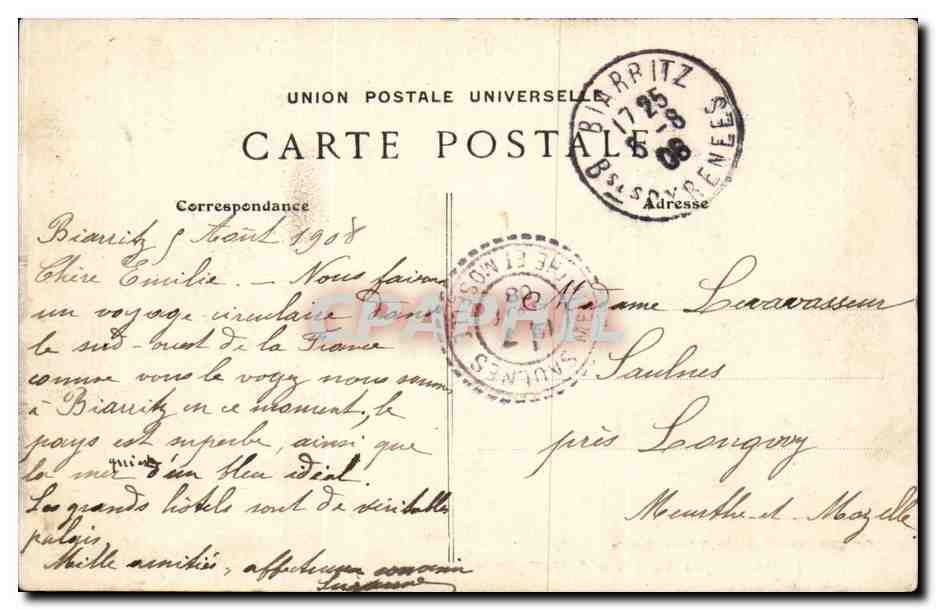 UNION POSTALE UNIVERSELLE
CARTE POSTALE
Correspondance
Adresse
BIARRITZ
17 25
5 - 8
08
Bses PYRENEES
Biarritz 5 Août 1908
Chère Emilie. - Nous faisons
un voyage circulaire dans
le sud-ouest de la France
comme vous le voyez nous sommes
à Biarritz en ce moment, le
pays est superbe, ainsi que
la mer qui est d'un bleu idéal.
Les grands hôtels sont de véritables
palais.
Mille amitiés, affectueux
Suzanne
SAULNES
MEURTHE ET MOSELLE
08
Madame Levavasseur
Saulnes
près Longwy
Meurthe-et-Mozelle
CPAPHIL